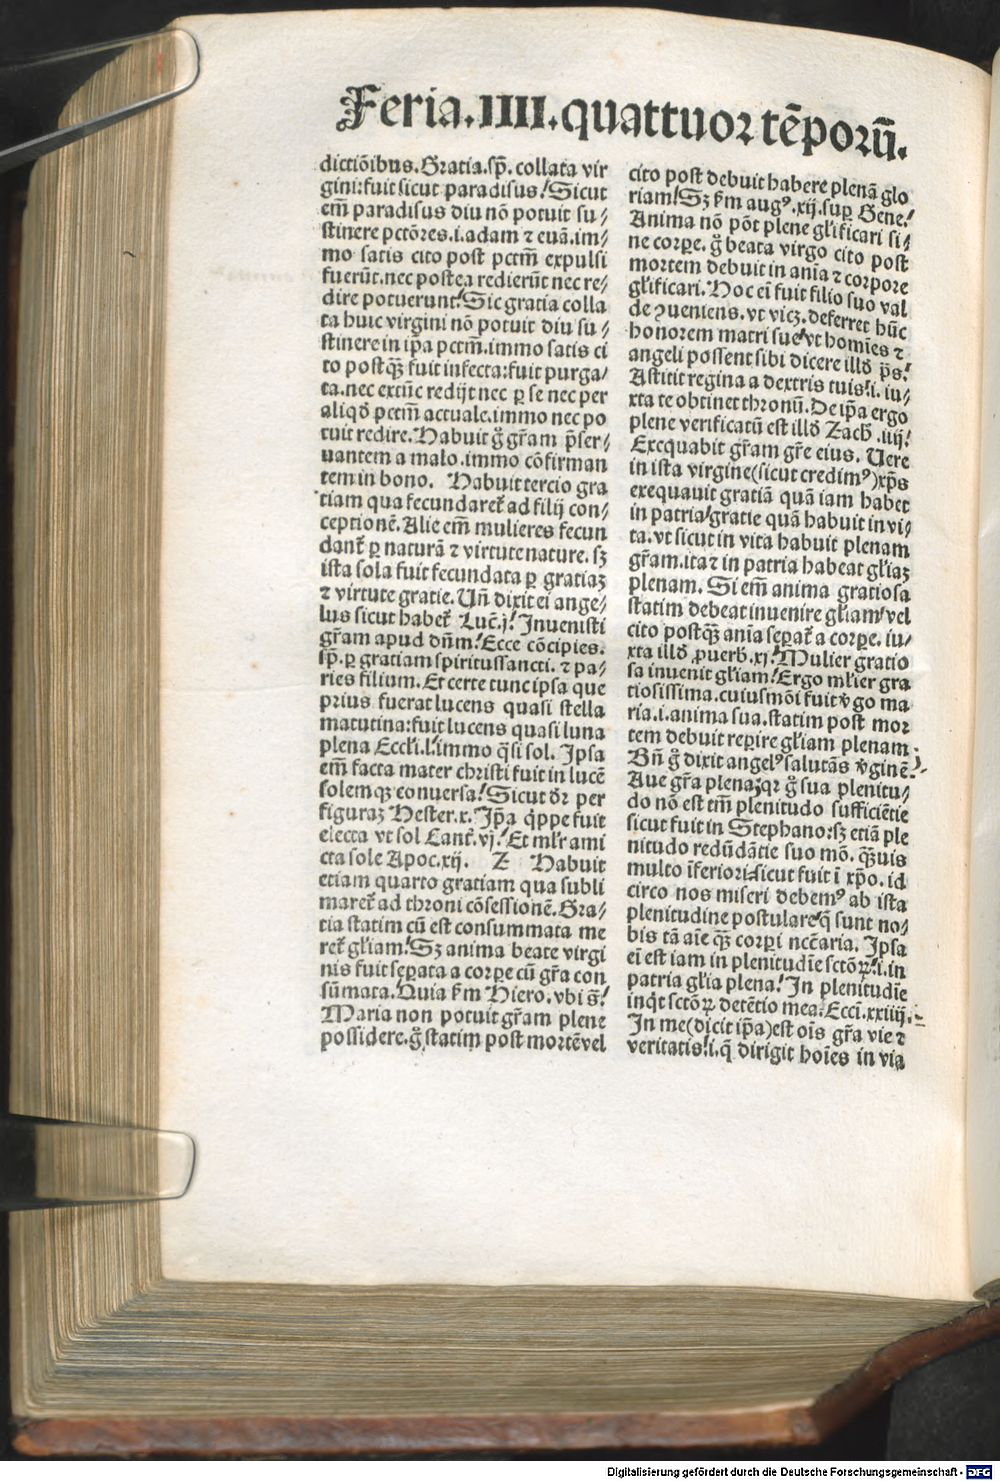 Feria.IIII.quattuor tēporū.
dictiōibus.Gratia.sp̄. collata vir
gini:fuit sicut paradisus/Sicut
em̄ paradisus diu nō potuit su/
stinere pctōres.i.adam ⁊ euā.im/
mo satis cito post pctm̄ expulsi
fuerūt.nec postea redierūt nec re/
dire potuerunt/Sic gratia colla
ta huic virgini nō potuit diu su/
stinere in ip̄a pctm̄.immo satis ci
to postqꝫ̄ fuit infecta:fuit purga/
ta.nec extūc redijt nec ꝑ se nec per
aliqd̄ pctm̄ actuale.immo nec po
tuit redire. Habuit g̊ gr̄am p̄ser/
uantem a malo.immo cōfirman
tem in bono. Habuit tercio gra
tiam qua fecundaret᷑ ad filij con/
ceptionē. Alie em̄ mulieres fecun
dant᷑ ꝑ naturā ⁊ virtute nature. sꝫ
ista sola fuit fecundata ꝑ gratiaꝫ
⁊ virtute gratie. Un̄ dixit ei ange/
lus sicut habet᷑ Luc̄.j/ Inuenisti
gr̄am apud dn̄m/ Ecce cōcipies.
sp̄. ꝑ gratiam spiritussancti. ⁊ pa/
ries filium. Et certe tunc ipsa que
prius fuerat lucens quasi stella
matutina:fuit lucens quasi luna
plena Eccl'i.l/immo q̄si sol. Ipsa
em̄ facta mater christi fuit in lucē
solemqꝫ conuersa/ Sicut d̄r per
figuraꝫ Hester.x. Ip̄a q̇ppe fuit
electa vt sol Cant᷑.vj/ Et ml'r ami
cta sole Apoc.xij. Z Habuit
etiam quarto gratiam qua subli
maret᷑ ad throni cōsessionē. Gra/
tia statim cū est consummata me
ret᷑ gl'iam/ Sꝫ anima beate virgi
nis fuit seꝑata a corꝑe cū gr̄a con
sūmata. Quia ẜm Hiero. vbi s̄/
Maria non potuit gr̄am plene
possidere.g̊ statim post mortē vel
cito post debuit habere plenā glo
riam/ Sꝫ ẜm augꝰ.xij.suꝑ Gene/
Anima nō pōt plene gl'ificari si/
ne corꝑe. g̊ beata virgo cito post
mortem debuit in aīa ⁊ corpore
gl'ificari. Hoc ei fuit filio suo val
de ꝯueniens. vt vicꝫ. deferret hūc
honorem matri sue/vt homīes ⁊
angeli possent sibi dicere illd̄ p̄s/
Astitit regina a dextris tuis/i. iu/
xta te obtinet thronū. De ip̄a ergo
plene verificatū est illd̄ Zach̄.iiij/
Exequabit gr̄am gr̄e eius. Uere
in ista virgine(sicut credimꝰ)xp̄s
exequauit gratiā quā iam habet
in patria/gratie quā habuit in vi/
ta. vt sicut in vita habuit plenam
gr̄am.ita ⁊ in patria habeat gl'iaꝫ
plenam. Si em̄ anima gratiosa
statim debeat inuenire gl'iam/vel
cito postqꝫ̄ aīa seꝑat᷑ a corꝑe. iu/
xta illd̄ ꝓuerb̄.xj/ Mulier gratio
sa inuenit gl'iam/ Ergo ml'ier gra
tiosissima.cuiusmōi fuit v̇go ma
ria.i.anima sua.statim post mor
tem debuit reꝑire gl'iam plenam.
Bn̄ g̊ dixit angelꝰ salutās v̇ginē/
Aue gr̄a plena/qꝛ g̊ sua plenitu/
do nō est tm̄ plenitudo sufficiētie
sicut fuit in Stephano:sꝫ etiā ple
nitudo redūdātie suo mō. qꝫ̄uis
multo īferiori/sicut fuit ī xp̄o. id
circo nos miseri debemꝰ ab ista
plenitudine postulare/q̄ sunt no/
bis tā aīe qꝫ̄ corꝑi nc̄c̄aria. Ipsa
ei est iam in plenitudīe sctōꝝ/i.in
patria gl'ia plena/ In plenitudīe
inq̇t sctōꝝ detētio mea. Ecci.xxiiij.
In me(dicit ip̄a)est oīs gr̄a vie ⁊
veritatis/i.q̄ dirigit hoīes in via
Digitalisierung gefördert durch die Deutsche Forschungsgemeinschaft - DFG